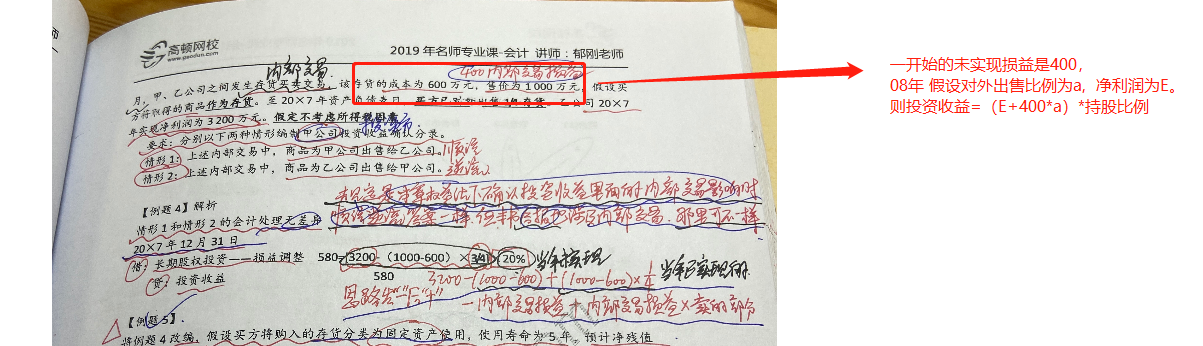 高顿网校
www.gaodun.com
2019 年名师专业课-会计 讲师：郁刚老师
内部交易
400内部交易损益
月，甲、乙公司之间发生存货买卖交易，该存货的成本为 600 万元，售价为 1000 万元，假设买
方将取得的商品作为存货。至 20×7 年资产负债表日，买方已对外出售 1/4 存货，乙公司 20×7
年实现净利润为 3200 万元。假定不考虑所得税因素
要求：分别以下两种情形编制甲公司投资收益确认分录。
情形 1：上述内部交易中，商品为甲公司出售给乙公司。顺流
情形 2：上述内部交易中，商品为乙公司出售给甲公司。逆流
一开始的未实现损益是400，
08年 假设对外出售比例为a，净利润为E。
则投资收益=（E+400*a）*持股比例
【例题 4】解析
情形 1 和情形 2 的会计处理无差异
20×7 年 12 月 31 日
借：长期股权投资——损益调整 580=【3200-（1000-600）×3/4】20%
当年未实现
贷：投资收益 580
3200-(1000-600)+(1000-600)×1/4 当年已实现
-内部交易损益+内部交易损益×卖的部分
【例题 5】.
将例题 4 改编，假设买方将购入的存货分类为固定资产使用，使用寿命为 5 年，预计净残值